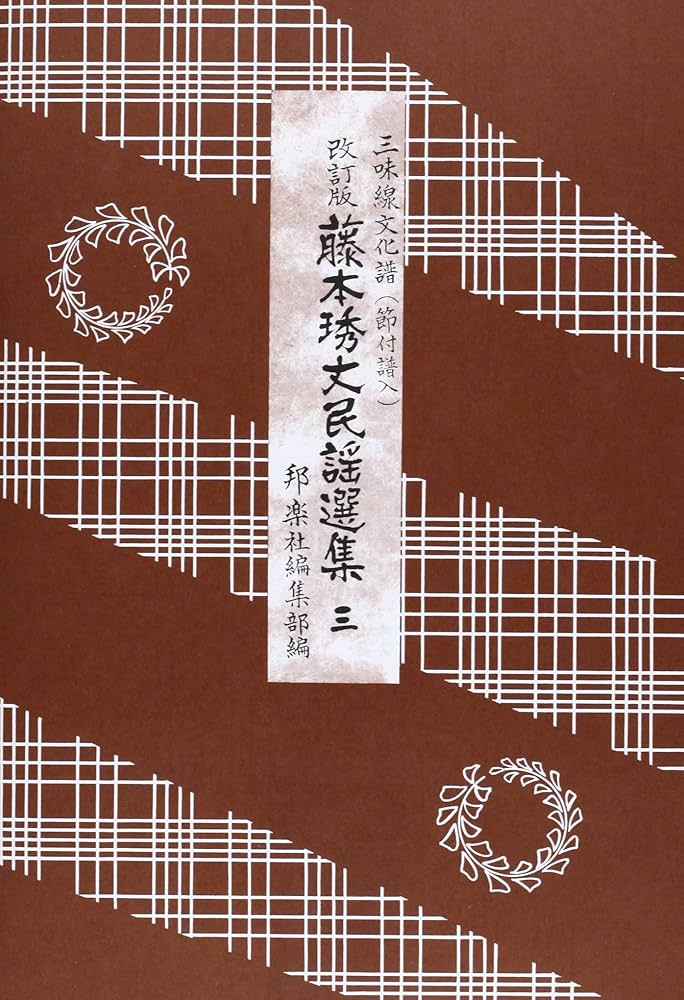 三味線文化譜（節付譜入）
改訂版 藤本琇丈民謡選集 三
邦楽社編集部編